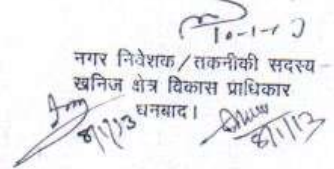 नगर निवेशक / तकनीकी सदस्य
खनिज क्षेत्र विकास प्राधिकार
धनबाद।
8/1/13
8/1/13